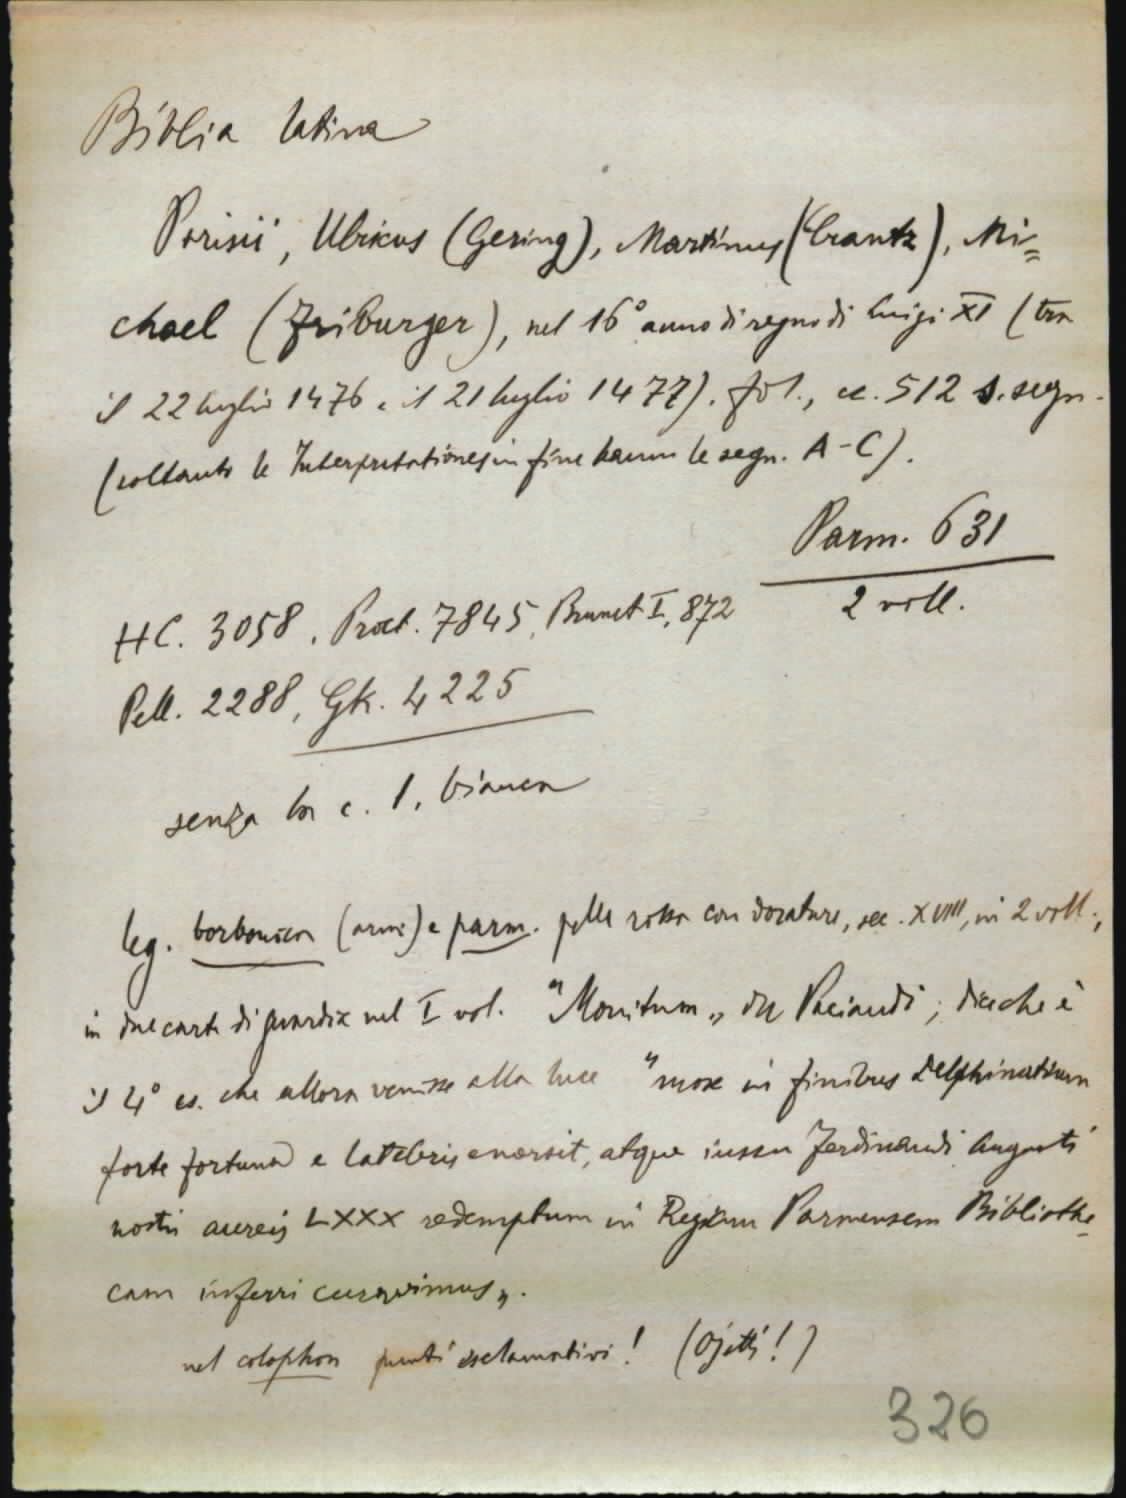 Biblia latina
Parisii, Ulricus (Gering), Martinus (Crantz), Mi=
chael (Friburger), nel 16° anno di regno di Luigi XI (tra
il 22 luglio 1476 e il 21 luglio 1477). fol., cc. 512 s. segn.
(soltanto le Interpretationes in fine hanno le segn. A-C).
Parm. 631
2 voll.
HC. 3058, Proct. 7845, Brunet I, 872
Pell. 2288, GK. 4225
senza la c. 1, bianca
leg. borbonica (armi) e parm. pelle rossa con dorature, sec. XVIII, in 2 voll.,
in due carte di guardia nel I vol. "Monitum„ du Paciaudi; dice che è
il 4° es. che allora venisse alla luce "mox in finibus Delphinatium
forte fortuna e latebris emersit, atque iussu Ferdinandi Augusti
nostri aureis LXXX redemptum in Regiam Parmensem Bibliothe=
cam inferri curavimus„.
nel colophon punti esclamativi! (Ojetti!)
326